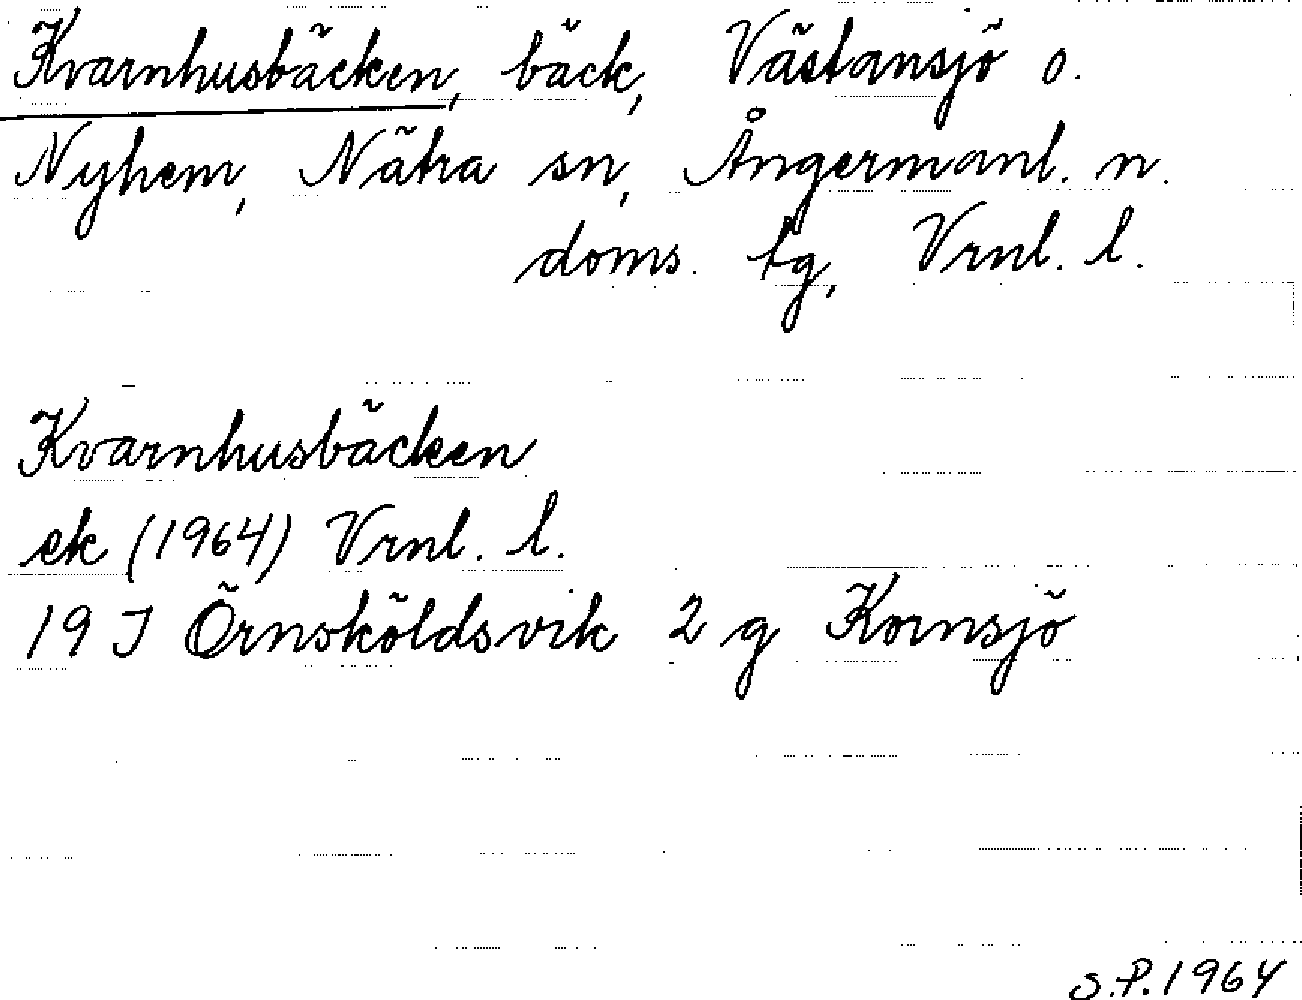 Kvarnhusbäcken, bäck, Västansjö o.
Nyhem, Nätra sn, Ångermanl. n.
doms. tg, Vrnl. l.
Kvarnhusbäcken
ek (1964) Vrnl. l.
19 J Örnsköldsvik 2 g Kornsjö
S.P. 1964